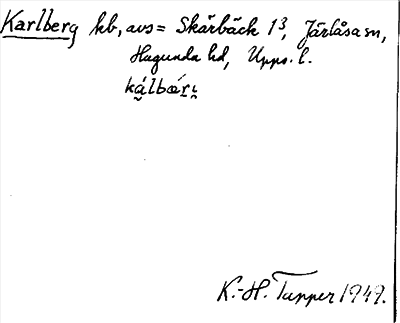 Karlberg kb, avs = Skärbäck 1³, Järlåsa sn,
Hagunda hd, Upps. l.
K.-H. Tupper 1949.